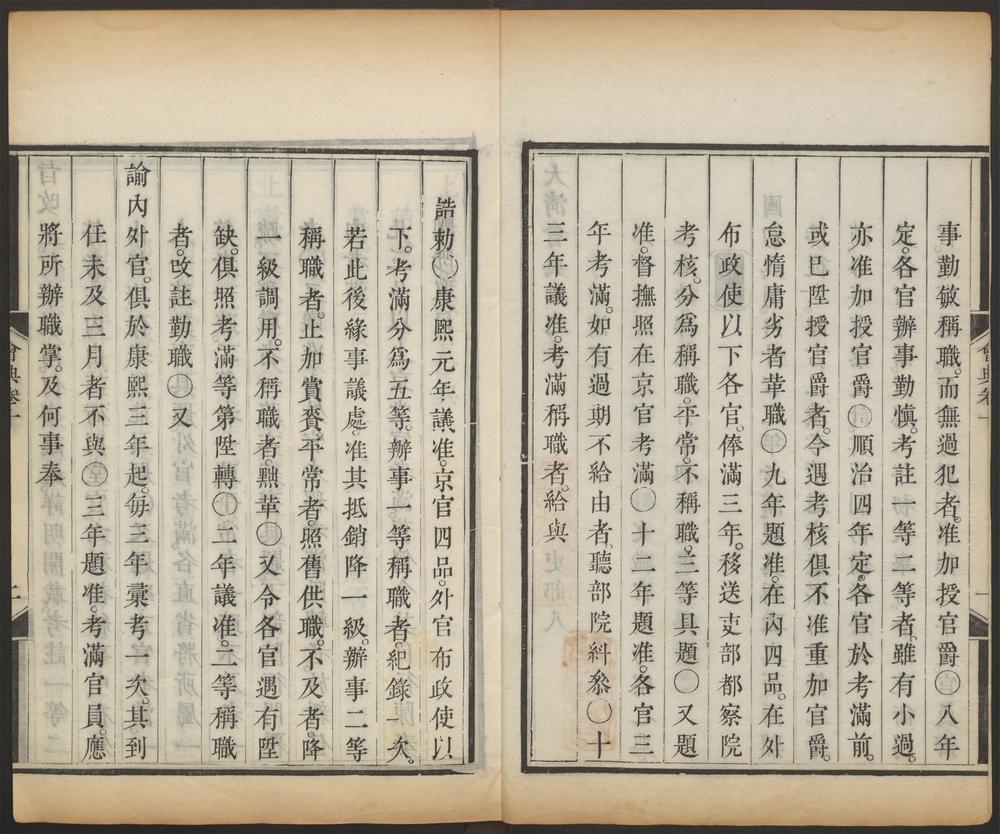 事勤敏稱職。而無過犯者。准加授官爵〇八年
定。各官辦事勤慎。考註一等二等者。雖有小過。
亦准加授官爵〇順治四年定。各官於考滿前。
或已陞授官爵者。今遇考核。俱不准重加官爵。
怠惰庸劣者革職〇九年題准。在內四品。在外
布政使以下各官。俸滿三年。移送吏部都察院
考核。分爲稱職。平常。不稱職。三等具題〇又題
准。督撫照在京官考滿〇十二年題准。各官三
年考滿。如有過期不給由者。聽部院糾叅〇十
三年議准。考滿稱職者。給與
誥勅〇康熙元年議准。京官四品。外官布政使以
下。考滿分爲五等。辦事一等稱職者。紀錄一次。
若此後緣事議處。准其抵銷降一級。辦事二等
稱職者。止加賞賚。平常者。照舊供職。不及者。降
一級調用。不稱職者。黜革〇又令各官遇有陞
缺。俱照考滿等第陞轉〇二年議准。二等稱職
者。改註勤職〇又
諭內外官。俱於康熙三年起。每三年彙考一次。其到
任未及三月者不與〇三年題准。考滿官員。應
將所辦職掌。及何事奉
會典卷十
一
會典卷十
二